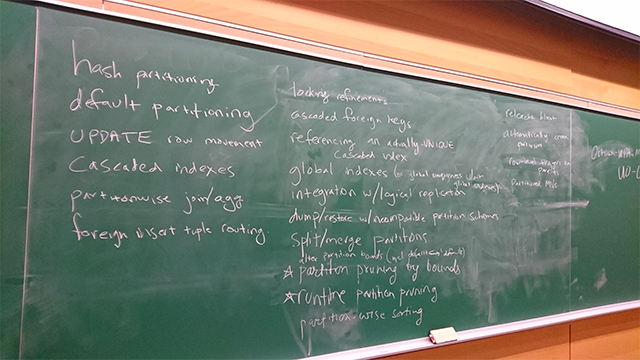 hash partitioning
default partitioning
UPDATE row movement
Cascaded indexes
partitionwise join/agg
foreign insert tuple routing
locking refinements
cascaded foreign keys
referencing an actually-UNIQUE
cascaded index
global indexes (or global uniqueness w/out
global indexes)
integration w/logical replication
dump/restore w/incompatible partition schemes
Split/merge partitions
alter partition bounds (incl default
☆ partition pruning by bounds
☆ runtime partition pruning
partition-wise sorting
relcache bloat
automatically create
partition
row-level triggers on